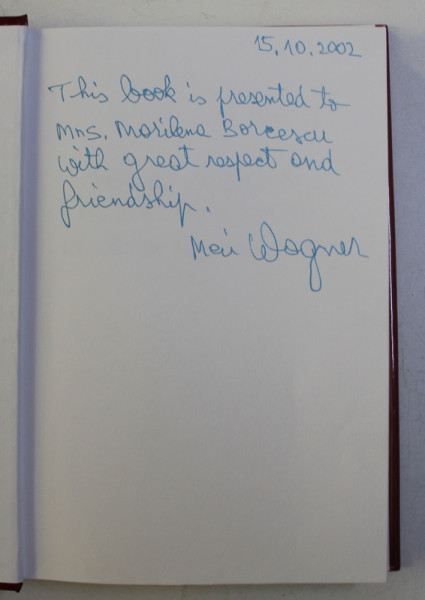 15.10.2002
This book is presented to
Mrs. Marilena Borcescu
with great respect and
friendship.
Meir Wagner